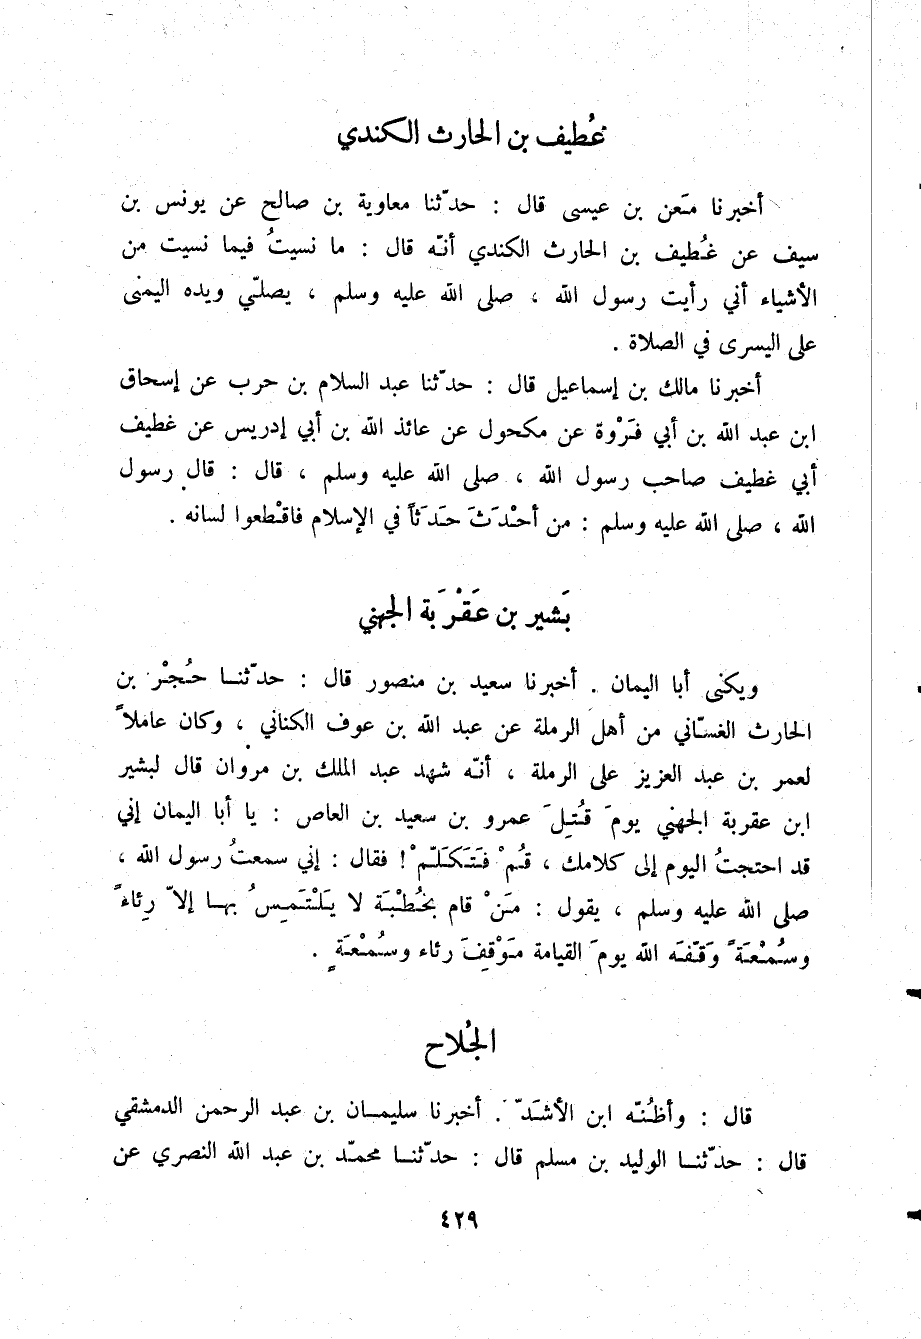 غُطيف بن الحارث الكندي
أخبرنا مَعن بن عيسى قال : حدّثنا معاوية بن صالح عن يونس بن
سيف عن غُطيف بن الحارث الكندي أنّه قال : ما نسيتُ فيما نسيت من
الأشياء أني رأيت رسول الله ، صلى الله عليه وسلم ، يصلّي ويده اليمنى
على اليسرى في الصلاة .
أخبرنا مالك بن إسماعيل قال : حدّثنا عبد السلام بن حرب عن إسحاق
ابن عبد الله بن أبي فَرْوة عن مكحول عن عائذ الله بن أبي إدريس عن غطيف
أبي غطيف صاحب رسول الله ، صلى الله عليه وسلم ، قال : قال رسول
الله ، صلى الله عليه وسلم : من أحْدَثَ حَدَثاً في الإسلام فاقْطعوا لسانه .
بَشير بن عَقْرَبة الجهني
ويكنى أبا اليمان . أخبرنا سعيد بن منصور قال : حدّثنا حُجْر بن
الحارث الغسّاني من أهل الرملة عن عبد الله بن عوف الكناني ، وكان عاملاً
لعمر بن عبد العزيز على الرملة ، أنّه شهد عبد الملك بن مروان قال لبشير
ابن عقربة الجهني يومَ قُتِلَ عمرو بن سعيد بن العاص : يا أبا اليمان إني
قد احتجتُ اليوم إلى كلامك ، قُمْ فَتَكَلّمْ ! فقال : إني سمعتُ رسول الله ،
صلى الله عليه وسلم ، يقول : مَنْ قام بخُطْبَة لا يَلْتَمِسُ بها إلاّ رِئاءً
وسُمْعَةً وَقَفَه الله يومَ القيامة مَوْقِفَ رئاء وسُمْعَةٍ .
الجُلاح
قال : وأظُنّه ابن الأشَدّ . أخبرنا سليمان بن عبد الرحمن الدمشقي
قال : حدّثنا الوليد بن مسلم قال : حدّثنا محمّد بن عبد الله النصري عن
٤٢٩